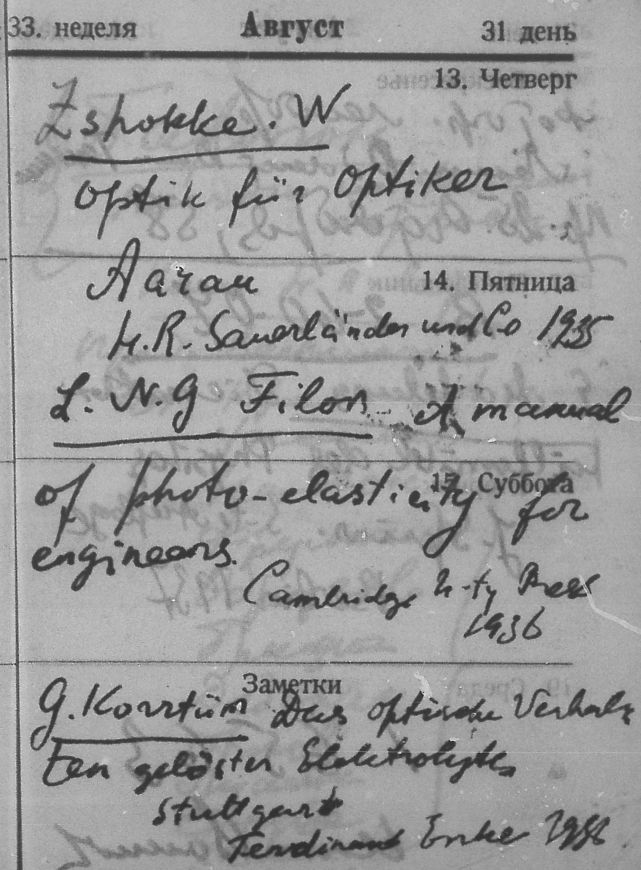 33. неделя Август 31 день
13. Четверг
Zshokke. W
Optik für Optiker
Aarau 14. Пятница
H. R. Sauerländer und Co 1935
L. N. G Filon A manual
15. Суббота
of photo-elasticity for
engineers.
Cambridge U-ty Press
1936
Заметки
G. Kortüm Das optische Verhal
ten gelöster Elektrolyte
Stuttgart
Ferdinand Enke 1936.